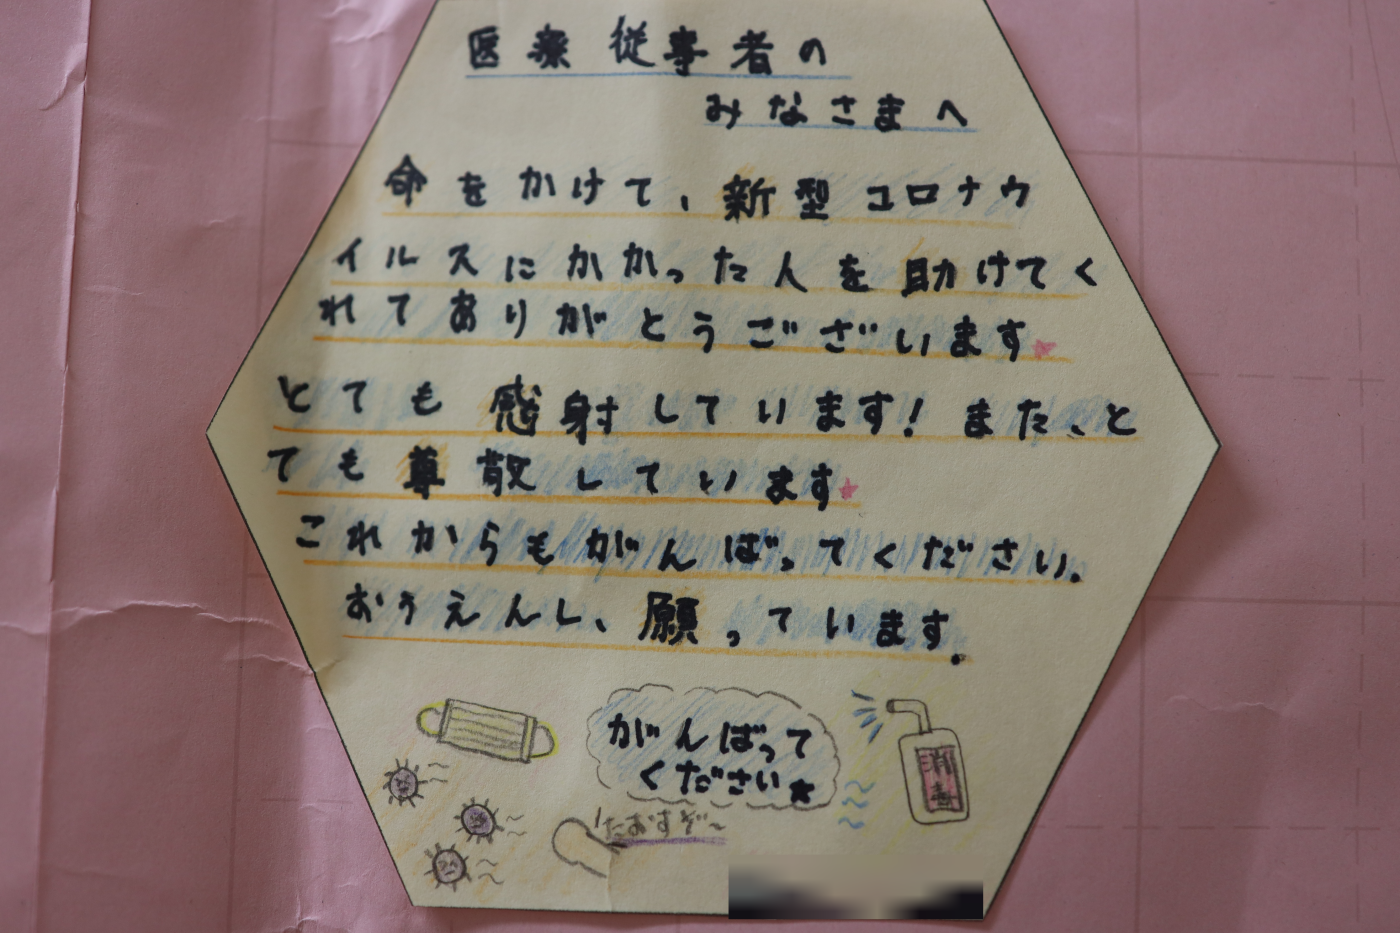 医療従事者の
みなさまへ
命をかけて、新型コロナウ
イルスにかかった人を助けてく
れてありがとうございます
とても感射しています!また、と
ても尊敬しています
これからもがんばってください。
おうえんし、願っています。
がんばって
ください★
たおすぞ〜
消毒